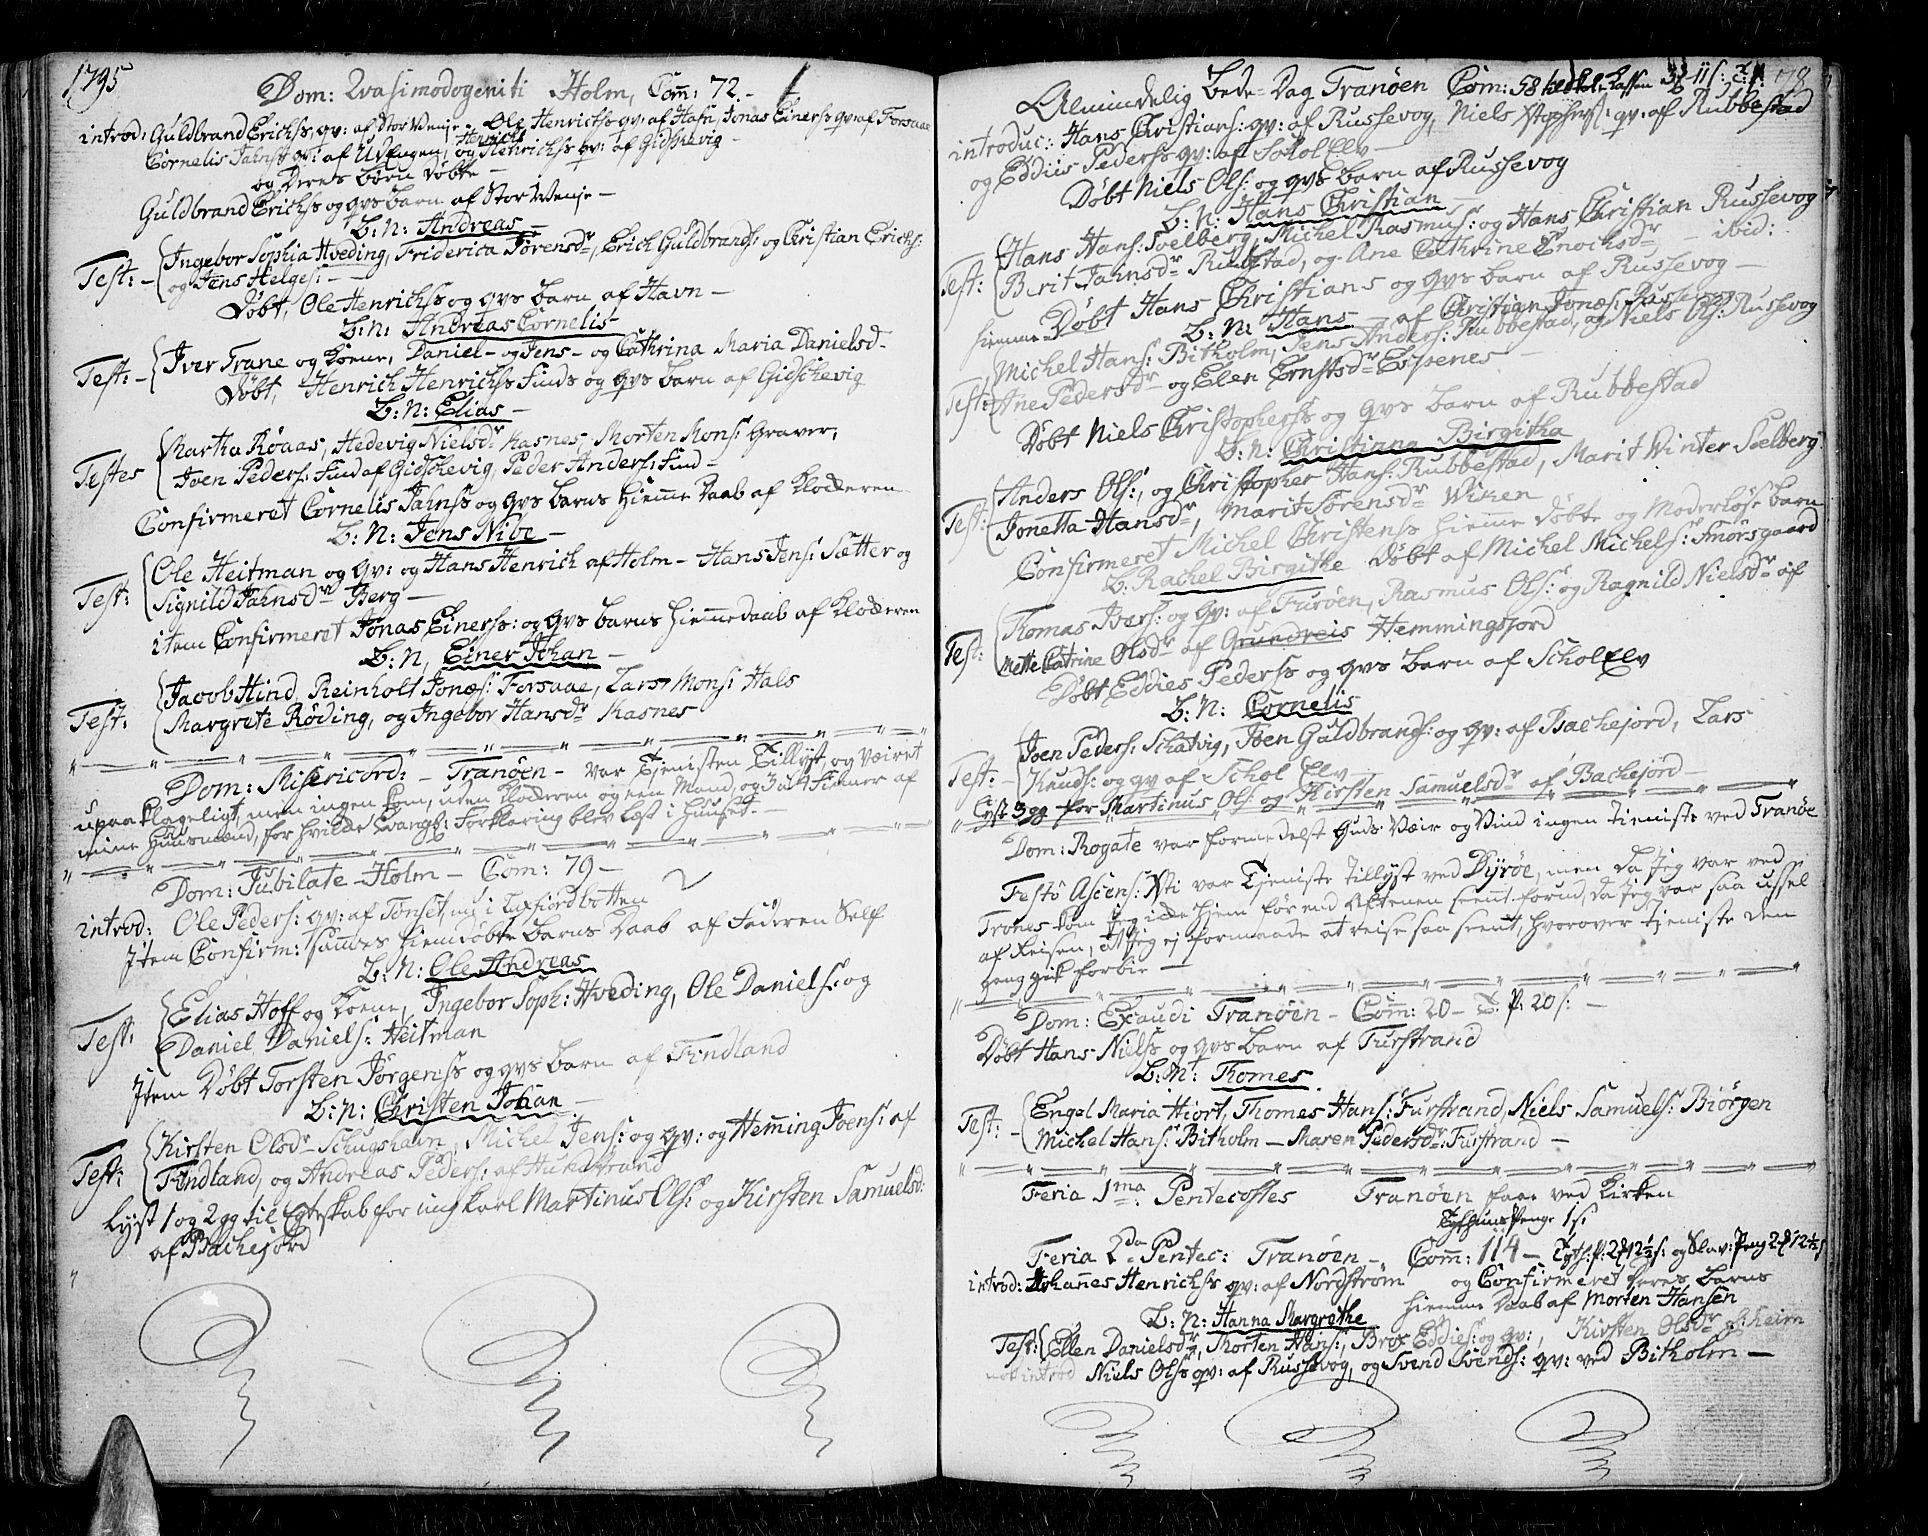 1795
Dom: Qvasimodogeniti Holm, Com: 72.-
introd: Guldbrand Erichss qv: af StorWenje - Ole Henrichss qv: af Hafn, Jonas Einerss qv: af Forsaae
Cornelis Jahnss qv: af UvEngen, og Henrich Henrichss qv: af Gidschevig -
og Deres børn døbte -
Guldbrand Erichss og qvs barn af Stor Wenje -
B: N: Andreas -
Test: - Ingebor Sophia Hveding, Friderica Sørensdr, Erich Guldbrands: og Christian Erichs:
og Jens Helges: -
Døbt, Ole Henrichss og qvs barn af Havn -
B: N: Andreas Cornelis
Test: - Iver Trane og Kone, Daniel - og Jens - og Cathrina Maria Danielsd -
Døbt, Henrich Henrichss Finds og qvs barn af Gidschevig
B: N: Elias -
Testes Martha Røaas, Hedevig Nielsdr Kasnes, Morten Mons: Graver,
Joen Peders: Find af Gidschevig, Peder Anders: Find -
Confirmeret Cornelis Jahnss og qvs barns hiemme Daab af Klokkeren
B: N: Jens Nibe -
Test: Ole Heitman og qv: og Hans Henrich af Holm - Hans Jens: Sætter og
Signild Jahnsdr Berg -
item Confirmeret Jonas Einerss: og qvs barns hiemmedaab af Klokkeren
B: N, Einer Johan -
Test: Jacob Hind, Reinholt Jonæs: Forsaae, Lars Mons: Hals
Margrete Røding, og Ingebor Hansdr Kasnes
Dom: Misericord: - Tranöen - var Tjenisten Tillyst, og Væiret
upaaklageligt, men ingen kom, uden Klokkeren og een Mand, og 3 a 4 Qvinner af
mine Huusmænd, for hvilke Evangl: Forklaring blev læst i Huuset -
Dom: Jubilate Holm - Com: 79 -
introd: Ole Peders: qv: af Tønset, nu i Laxfiordbotten
Item Confirm: sammes hiemdøbte barns Daab af Faderen Self
B: N: Ole Andreas
Test: Elias Hoff og Kone, Ingebor Soph: Hveding, Ole Daniels: og
Daniel Daniels: Heitman
Item Døbt Torsten Jörgenss og qvs barn af Findland
B: N: Christen Johan -
Test: Kirsten Olsdr Schugshavn, Michel Jens: og qv: og Heming Joens: af
Findland, og Andreas Peders: af
Lyst 1 og 2 gg til Egteskab for ung karl Martinus Ols: og Kirsten Samuelsd:
af Bachejord
Almindelig Bede-Dag Tranöen Com: 58
introduc: Hans Christians: qv: af Russevog, Niels Xstophss: qv: af Rubbestad
og Eddiis Pederss qv: af Skol Elv -
Døbt Niels Ols: og qvs barn af Russevog
B: N: Hans Christian -
Test: Hans Hans: Soelberg, Michel Rasmus: og Hans Christian Russevog
Berit Jahnsdr Rubbstad, og Ane Cathrine Enochsdr - ibid:
hiemme Døbt Hans Christians og qvs barn af Russevog -
B: N: Hans - af Christian Jonæs: Russevog
Test: Michel Hans: Bitholm, Jens Anders: Rubbestad, og Niels Ols: Russevog
Ane Pedersdr og Elen Ernstsdr Espenes -
Døbt Niels Christopherss og qvs barn af Rubbestad
B: N: Christinna Birgitha
Test: Anders Ols:, og Christopher Hans: Rubbestad, Marit Winter Soelberg
Jonetta Hansdr, Marit Sørensdr Wiken
Confirmeret Michel Christenss hiemme døbte og Moderløse barn
B: Rachel Birgithe Døbt af Michel Michels: Smörsgaard
Test: Thomas Ivers: og qv: af Furøen, Rasmus Ols: og Ragnild Nielsdr af
Mette Catrine Olsdr af Grundreis Hemmingsfjord
Døbt Eddies Pederss og qvs barn af Schol Elv
B: N: Cornelis
Test: - Joen Peders: Schatvig, Joen Guldbrands: og qv: af Bachejord, Lars
Knuds: og qv af Schol Elv -
Lyst 3 gg for Martinus Ols: og Kirsten Samuelsdr af Bachejord -
Dom: Rogate var formedelst Guds Væir og Vind ingen tieniste ved Tranöe
Festo Ascens: Xsti var Tjeniste tillyst ved Dyrøe, men da Jeg var ved
Trones kom jeg ikke hjem før end Aftenen seent forud, da jeg var saa ussel
af Reisen, at jeg ej formaade at reise saa seent, hvorover tjeniste den
gang gik forbie -
Dom: Exaudi Tranöen - Com: 20 - T: P: 20 s: -
Døbt Hans Nielss og qvs barn af Furstrand
B: N: Thomes
Test: - Engel Maria Hiort, Thomes Hans: Furstrand, Niels Samuels: Biörgen
Michel Hans: Bitholm - Maren Pedersdr: Furstrand -
Feria 1ma: Pentecostes Tranöen faae ved Kirken
Tyfhuus Penge 1 s:
Feria 2da Pentec: Tranöen - Comm: 114 -
introd: Johannes Henrichss qv: af Nordstrøm og Confirmeret deres barns
hiemme Daab af Morten Hansen
B: N: Hanna Margrethe
Test: Ellen Danielsdr, Morten Hans:, Brox Eddies: og qv:, Kirsten Olsdr af: Reim
not introd Niels Olss qv: af Russevog, og Svend Svends: qv: ved Bitholm -